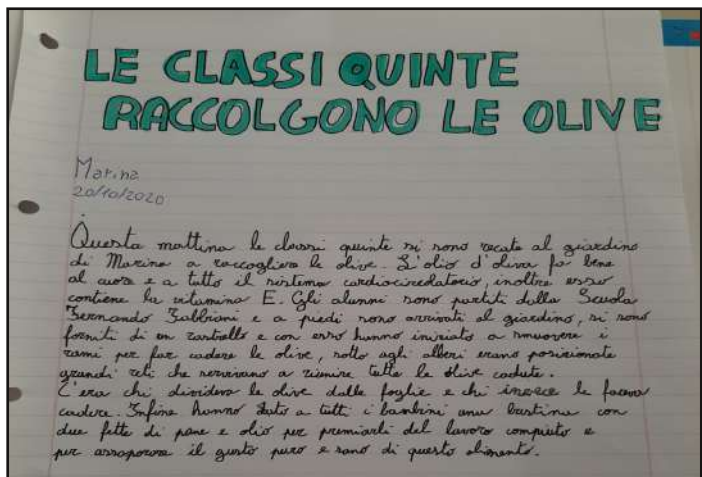 LE CLASSI QUINTE
RACCOLGONO LE OLIVE
Marina
20/10/2020
Questa mattina le classi quinte si sono recate al giardino
di Marina a raccogliere le olive. L'olio d'oliva fa bene
al cuore e a tutto il sistema cardiocircolatorio, inoltre esso
contiene la vitamina E. Gli alunni sono partiti dalla Scuola
Fernando Fabbiani e a piedi sono arrivati al giardino, si sono
forniti di un rastrello e con esso hanno iniziato a smuovere i
rami per far cadere le olive, sotto agli alberi erano posizionate
grandi reti che servivano a riunire tutte le olive cadute.
C'era chi divideva le olive dalle foglie e chi invece le faceva
cadere. Infine hanno dato a tutti i bambini una bustina con
due fette di pane e olio per premiarli del lavoro compiuto e
per assaporare il gusto puro e sano di questo alimento.